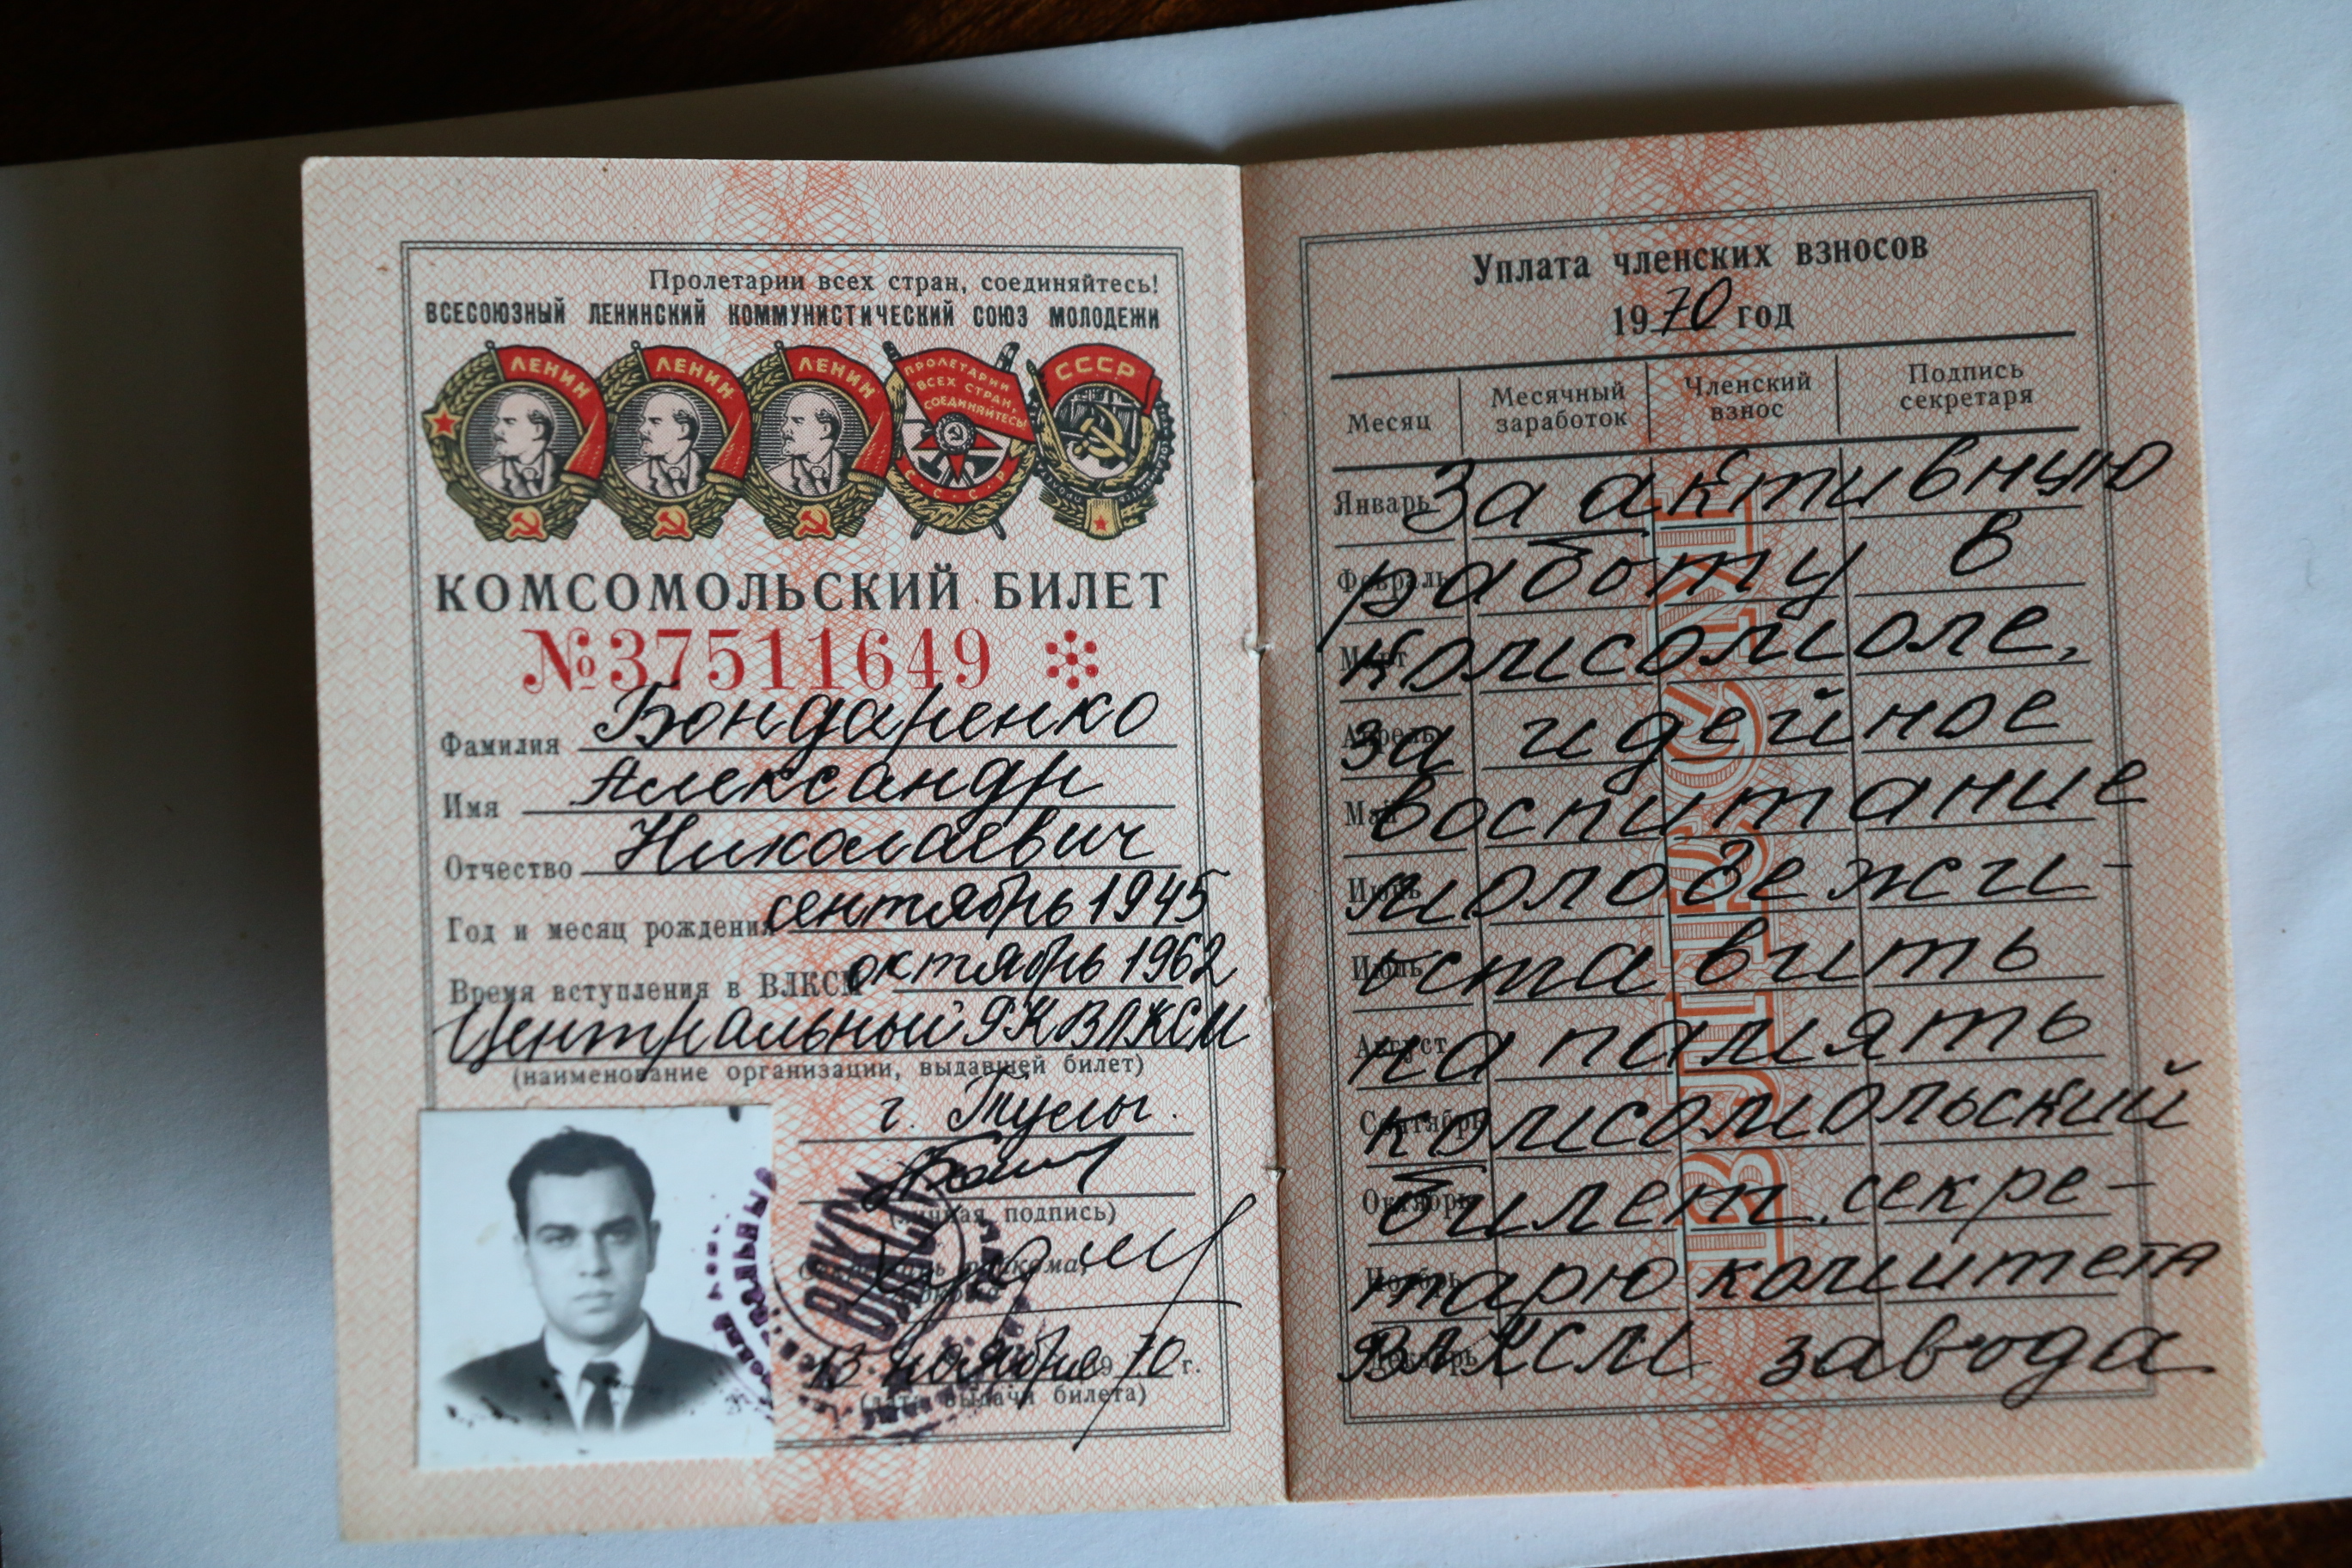 Пролетарии всех стран, соединяйтесь!
ВСЕСОЮЗНЫЙ ЛЕНИНСКИЙ КОММУНИСТИЧЕСКИЙ СОЮЗ МОЛОДЕЖИ
ЛЕНИН ЛЕНИН ЛЕНИН ПРОЛЕТАРИИ ВСЕХ СТРАН, СОЕДИНЯЙТЕСЬ! СССР
КОМСОМОЛЬСКИЙ БИЛЕТ
№37511649
Фамилия Бондаренко
Имя Александр
Отчество Николаевич
Год и месяц рождения сентябрь 1945
Время вступления в ВЛКСМ октябрь 1962
Центральный РК ВЛКСМ
(наименование организации, выдавшей билет)
г. Тулы.
(личная подпись)
ВЛКСМ
13 ноября 1970 г.
(дата выдачи билета)
Уплата членских взносов
1970 год
Месяц Месячный заработок Членский взнос Подпись секретаря
Январь За активную
Февраль работу в
Март комсомоле,
Апрель за идейное
Май воспитание
Июнь молодежи -
Июль оставить
Август на память
Сентябрь комсомольский
Октябрь билет секре-
Ноябрь тарю комитета
Декабрь ВЛКСМ завода
ВЛКСМ